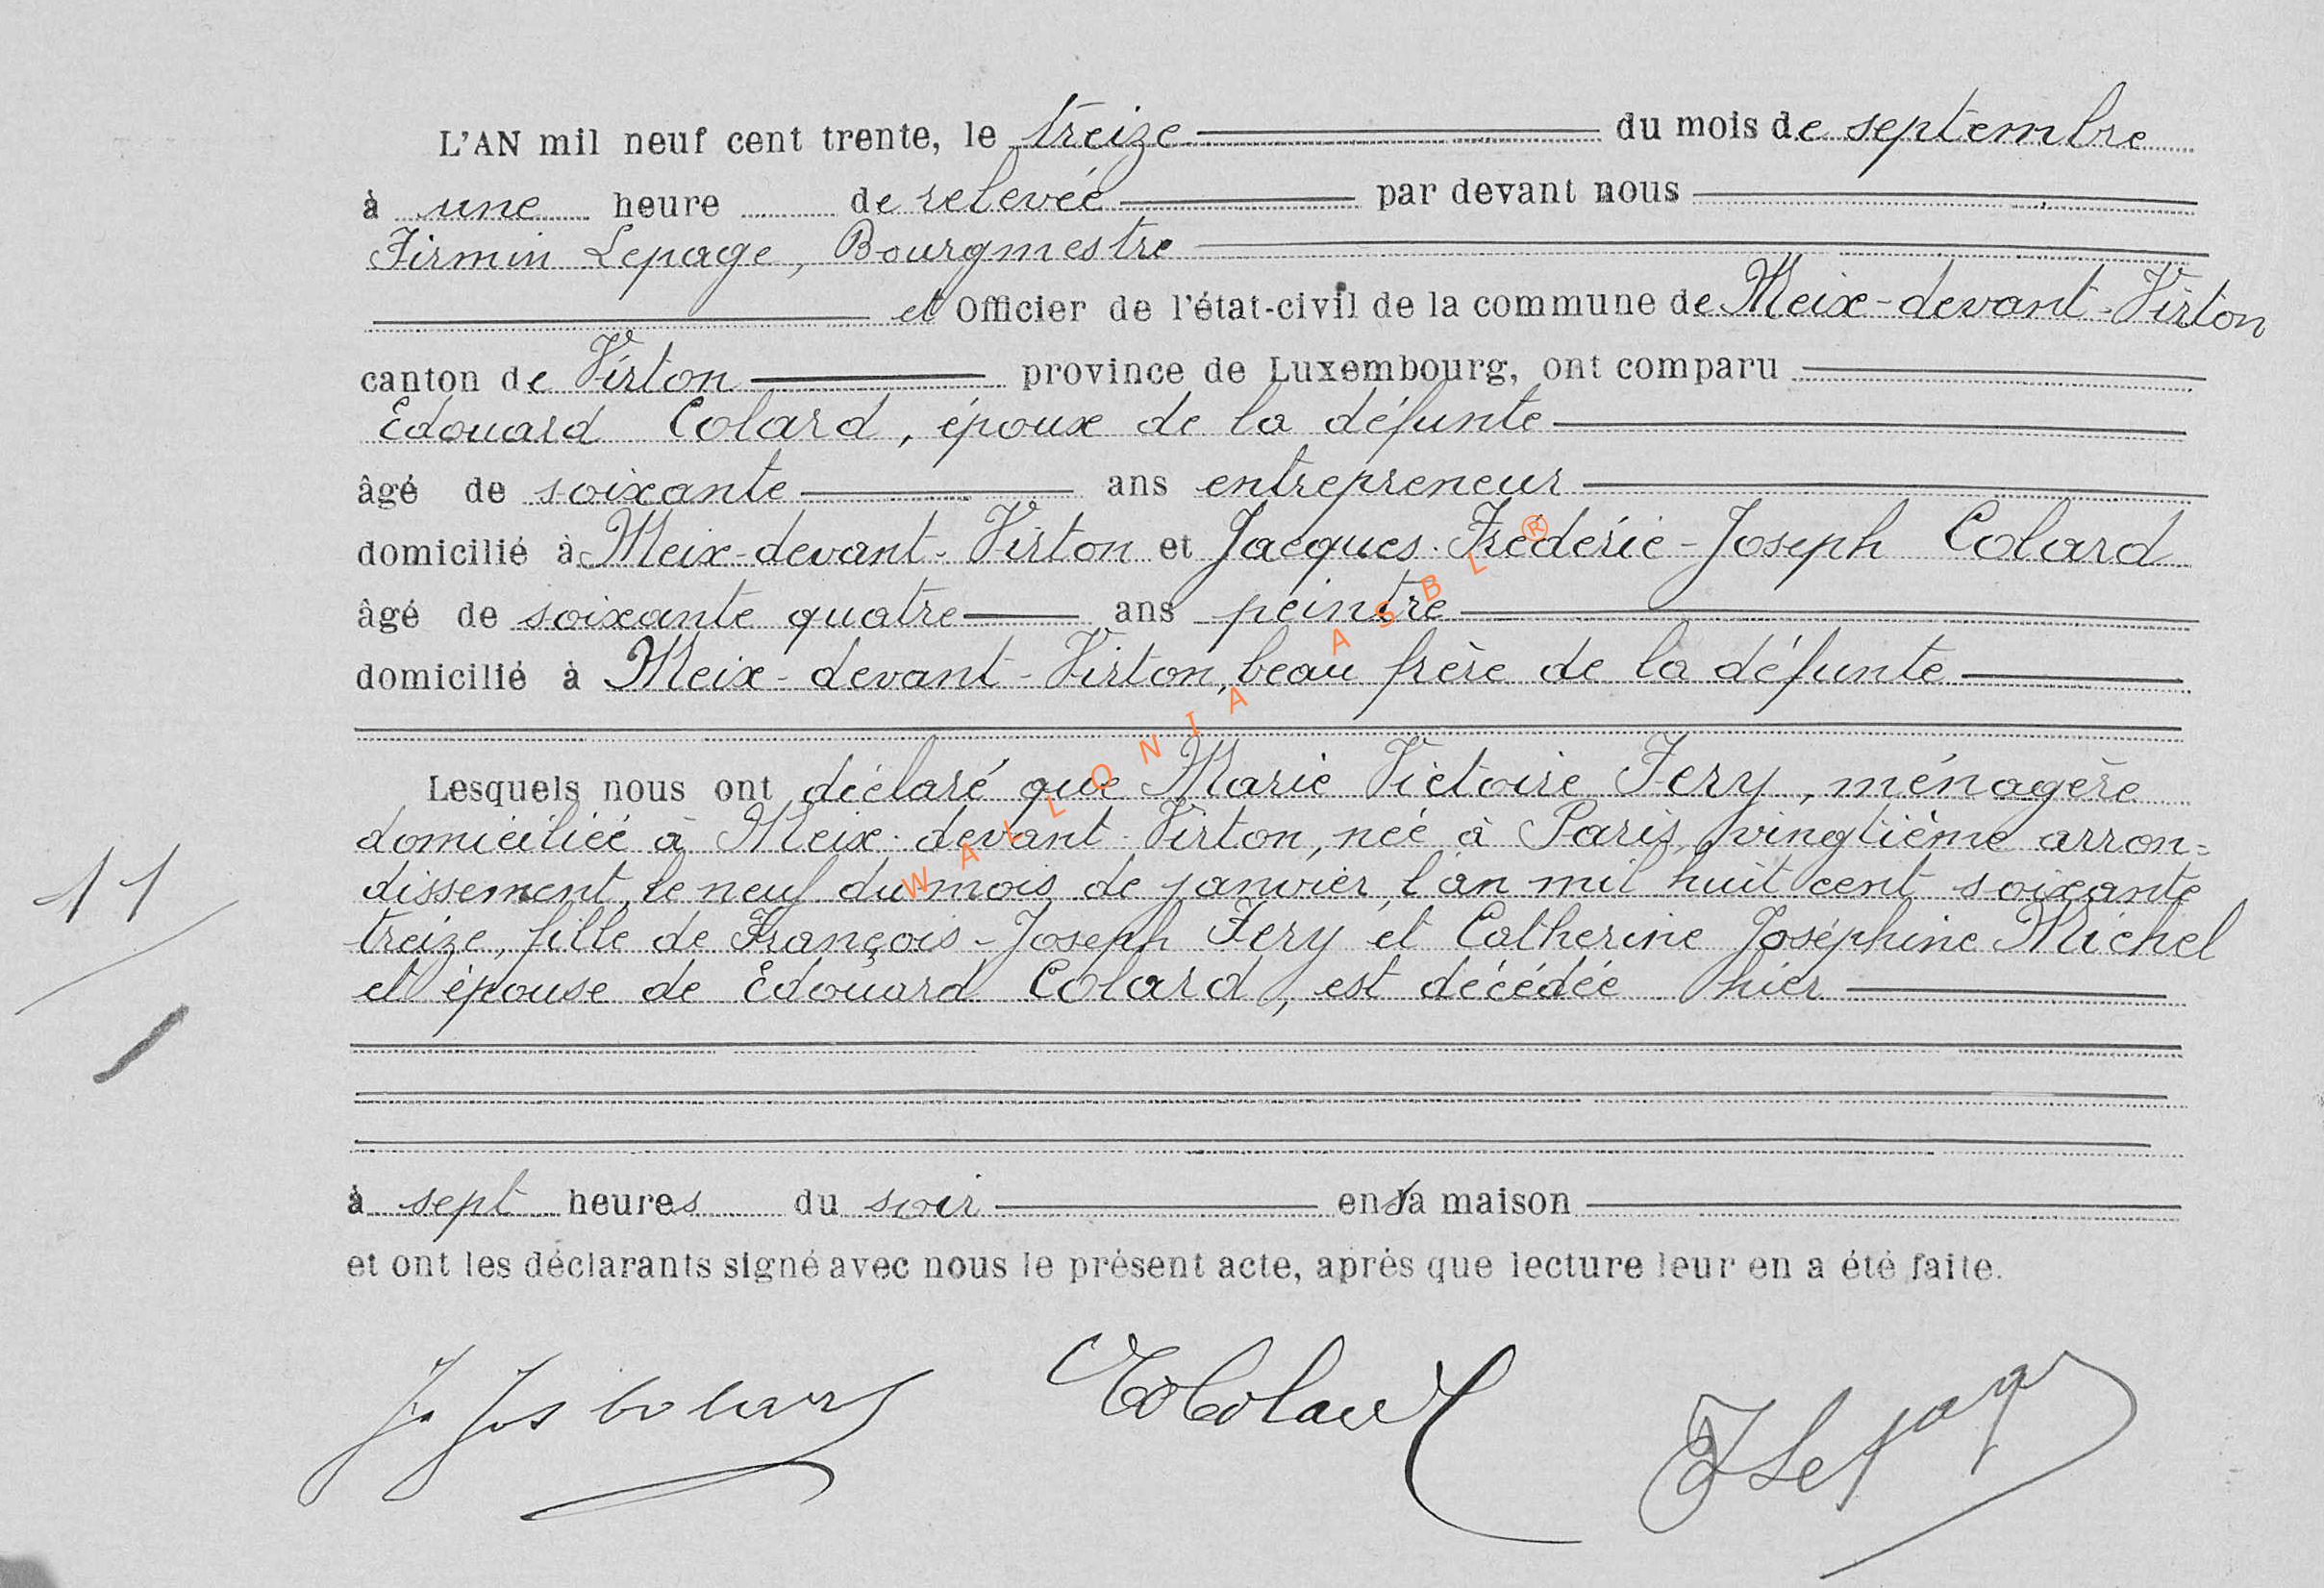 L'AN mil neuf cent trente, le treize du mois de septembre
à une heure de relevée par devant nous
Firmin Lepage, Bourgmestre
et Officier de l'état-civil de la commune de Meix-devant-Virton
canton de Virton province de Luxembourg, ont comparu
Edouard Colard, époux de la défunte
âgé de soixante ans entrepreneur
domicilié à Meix-devant-Virton et Jacques-Fréderic-Joseph Colard
âgé de soixante quatre ans peintre
domicilié à Meix-devant-Virton, beau frère de la défunte
Lesquels nous ont déclaré que Marie Victoire Fery, ménagère
domiciliée à Meix-devant-Virton, née à Paris, vingtième arron=
dissement, le neuf du mois de janvier, l'an mil huit cent soixante
treize, fille de François-Joseph Fery et Catherine Joséphine Michel
et épouse de Edouard Colard, est décédée hier
11
à sept heures du soir en sa maison
et ont les déclarants signé avec nous le présent acte, après que lecture leur en a été faite.
J. Jos Colard Ed Colard F Lepage
WALLONIA ASBL ®